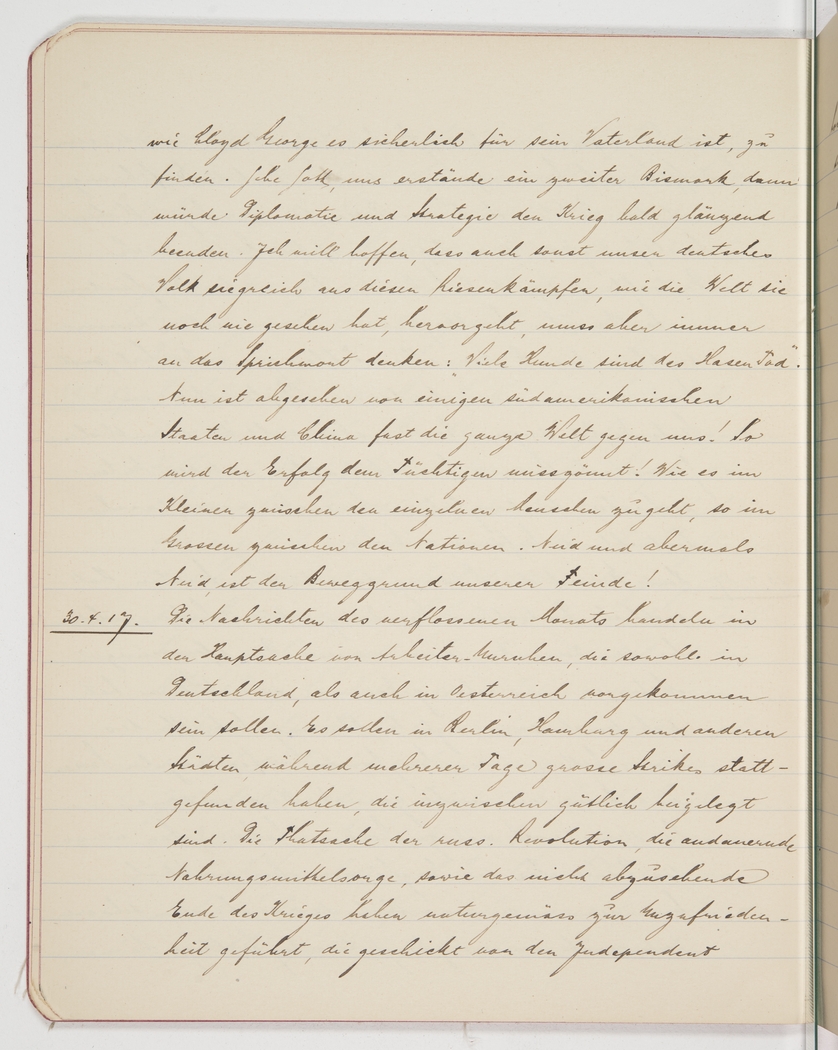 wie Lloyd George es sicherlich für sein Vaterland ist, zu
finden. Gebe Gott, uns erstände ein zweiter Bismark, dann
würde Diplomatie und Strategie den Krieg bald glänzend
beenden. Ich will hoffen, dass auch sonst unser deutsches
Volk siegreich aus diesen Riesenkämpfen, wie die Welt sie
noch nie gesehen hat, hervorgeht, muss aber immer
an das Sprichwort denken: "Viele Hunde sind des Hasen Tod".
Nun ist abgesehen von einigen südamerikanischen
Staaten und China fast die ganze Welt gegen uns! So
wird der Erfolg dem Tüchtigen missgönnt! Wie es im
Kleinen zwischen den einzelnen Menschen zugeht, so im
Grossen zwischen den Nationen. Neid und abermals
Neid, ist der Beweggrund unserer Feinde!
30.4.17. Die Nachrichten des verflossenen Monats handeln in
der Hauptsache von Arbeiter-Unruhen, die sowohl in
Deutschland, als auch in Oesterreich vorgekommen
sein sollen. Es sollen in Berlin, Hamburg und anderen
Städten, während mehrerer Tage grosse Strikes statt-
gefunden haben, die inzwischen gütlich beigelegt
sind. Die Thatsache der russ. Revolution, die andauernde
Nahrungsmittelsorge, sowie das nicht abzusehende
Ende des Krieges haben naturgemäss zur Unzufrieden-
heit geführt, die geschickt von den Independent